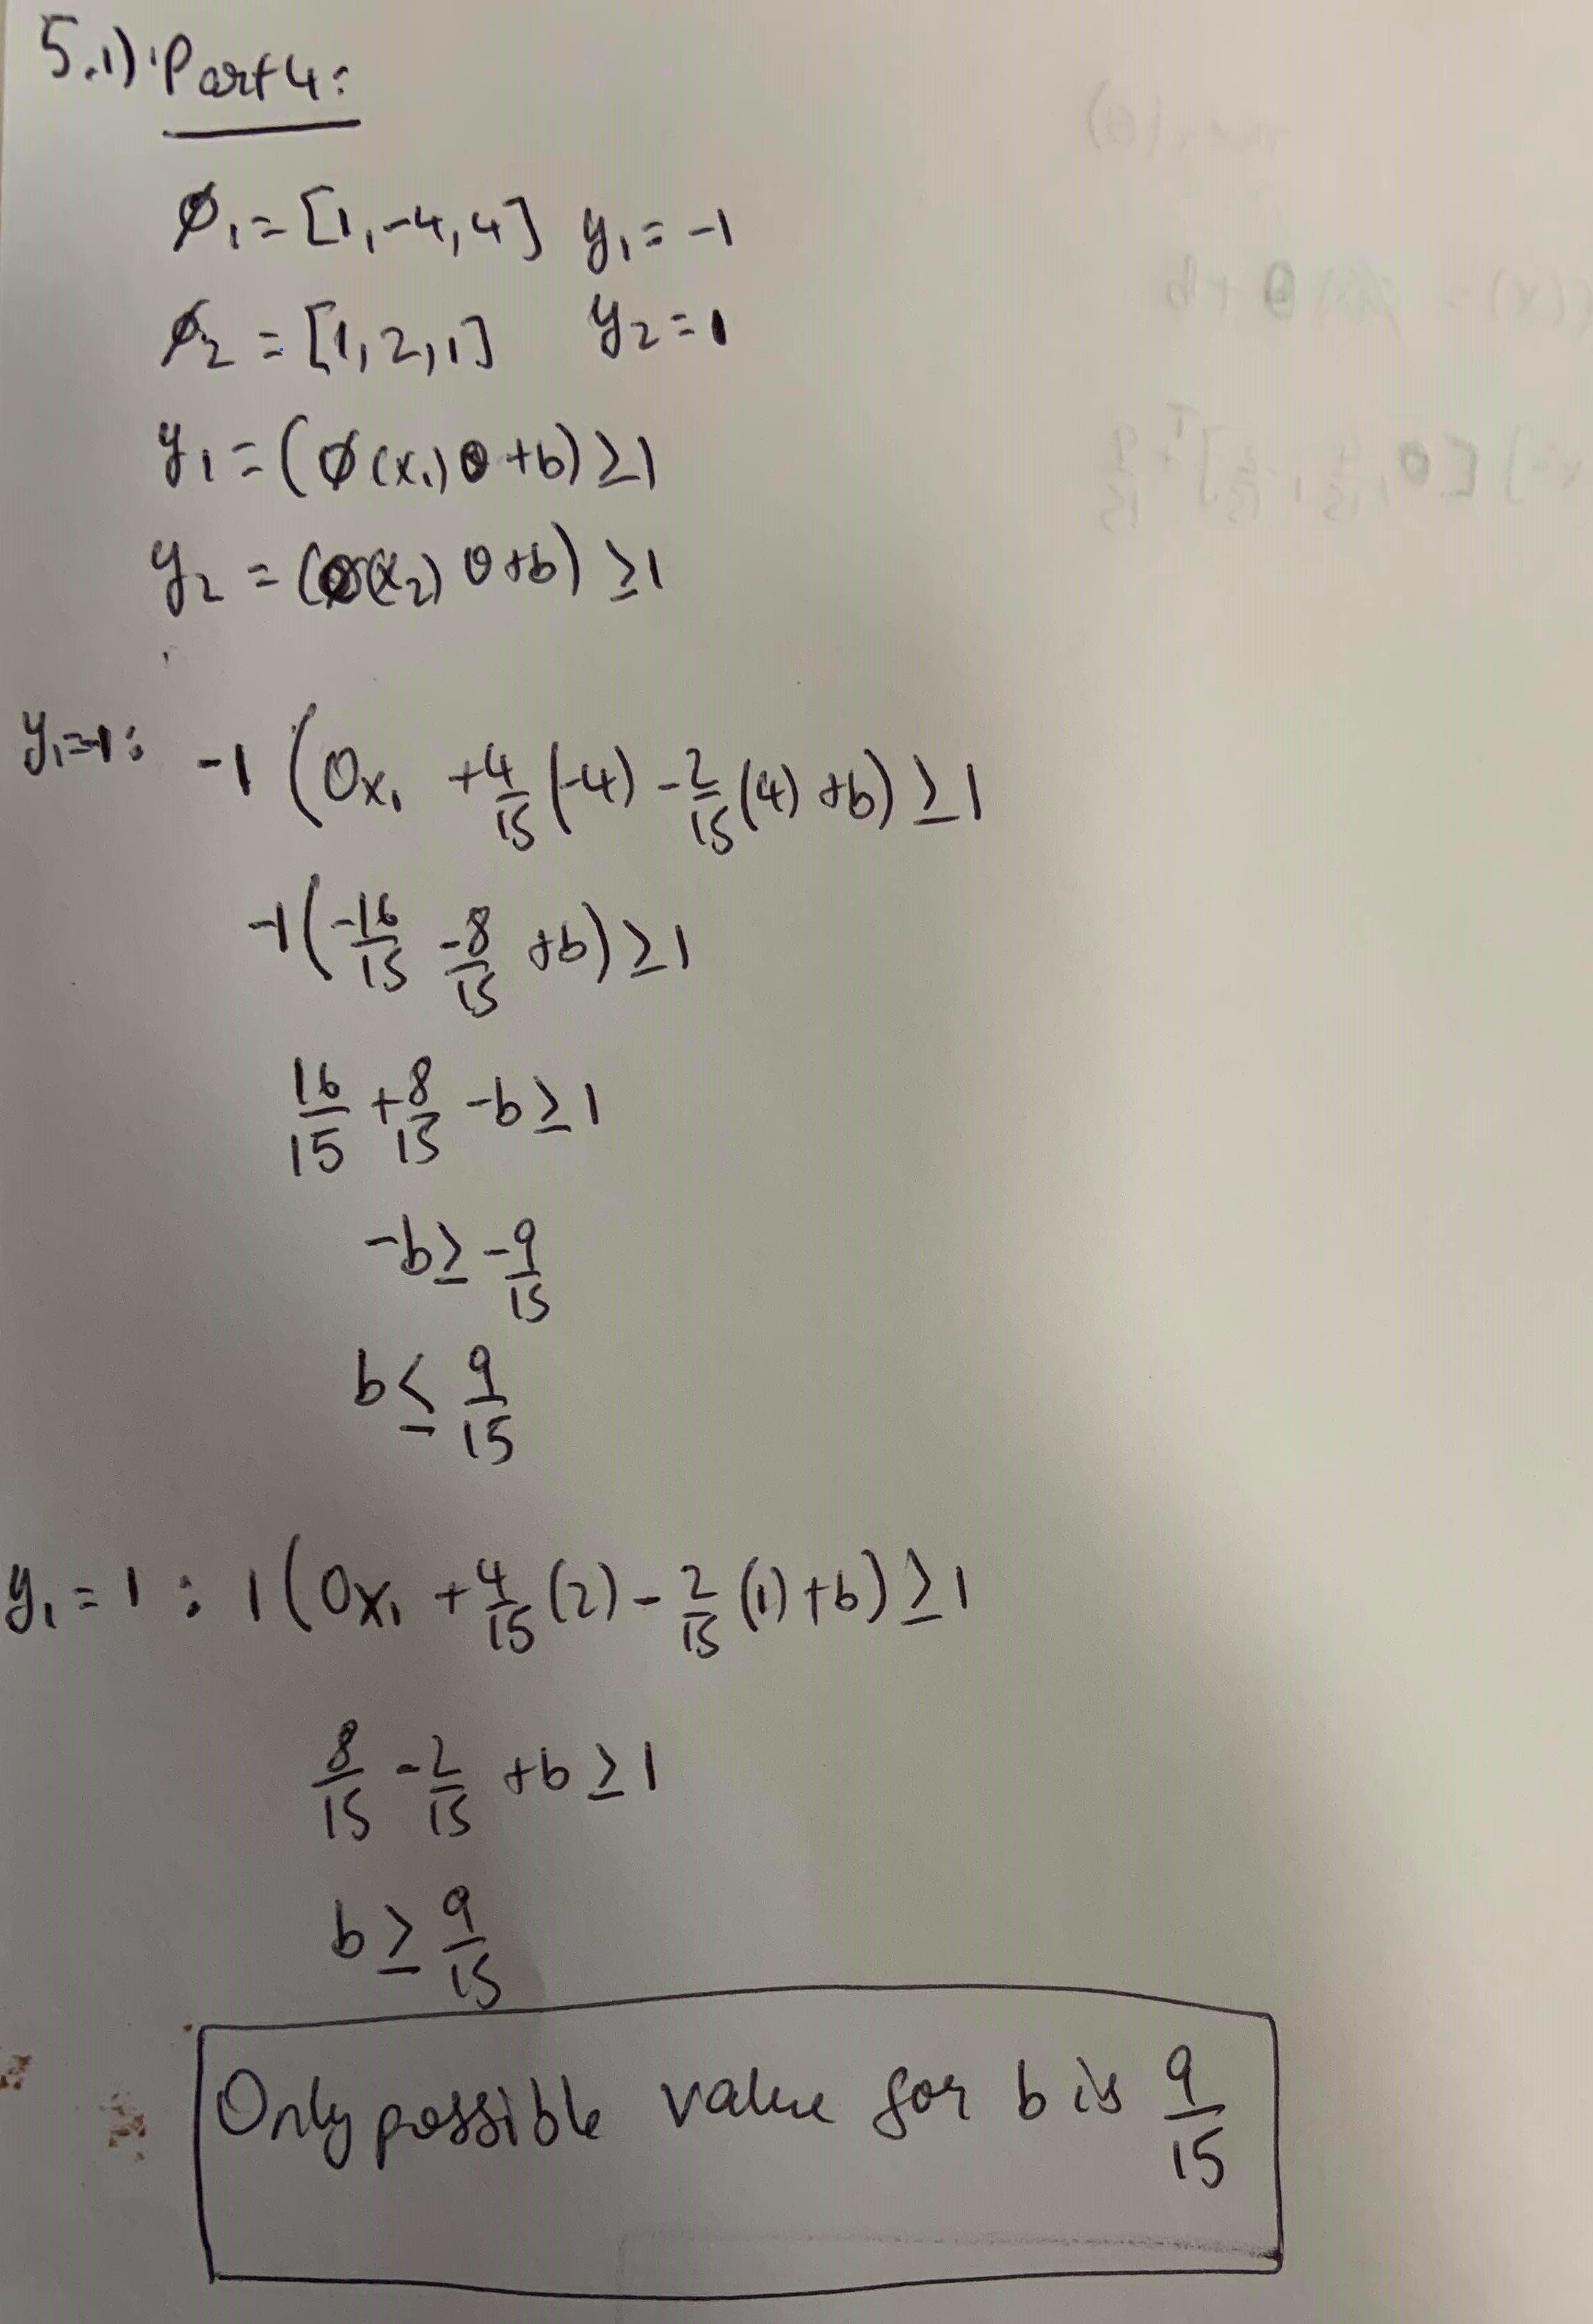 5.1) Part 4:
ø₁ = [1, -4, 4] y₁ = -1
ø₂ = [1, 2, 1] y₂ = 1
y₁ = (ø(x₁) θ + b) ≥ 1
y₂ = (ø(x₂) θ + b) ≥ 1
y₁=-1: -1 (0x₁ + 4/15 (-4) - 2/15 (4) + b) ≥ 1
-1 (-16/15 - 8/15 + b) ≥ 1
16/15 + 8/15 - b ≥ 1
-b ≥ -9/15
b ≤ 9/15
y₁ = 1 : 1 (0x₁ + 4/15 (2) - 2/15 (1) + b) ≥ 1
8/15 - 2/15 + b ≥ 1
b ≥ 9/15
Only possible value for b is 9/15